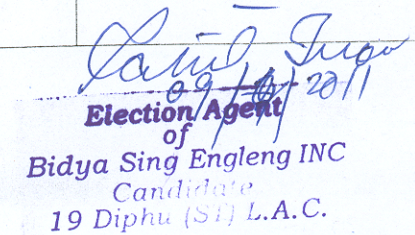 09/06/2011
Election Agent
of
Bidya Sing Engleng INC
Candidate
19 Diphu (ST) L.A.C.